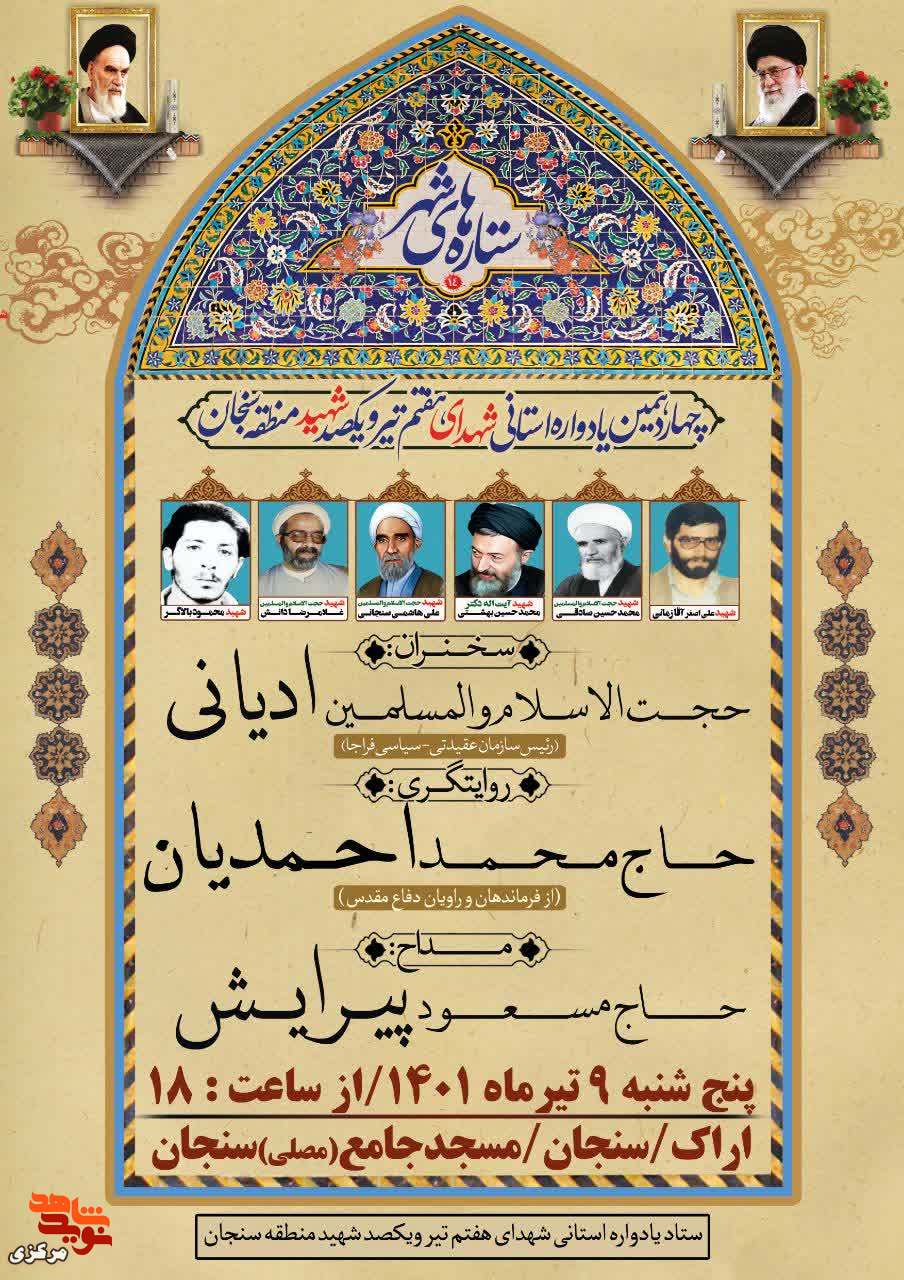 ستاره های شهر
۱٤
چهاردهمین یادواره استانی شهدای هفتم تیر و یکصد شهید منطقه سنجان
شهید علی اصغر آقازمانی
شهید حجت الاسلام والمسلمین
محمد حسین صادقی
شهید آیت اله دکتر
محمد حسین بهشتی
شهید حجت الاسلام والمسلمین
علی هاشمی سنجانی
شهید حجت الاسلام والمسلمین
غلامرضا دانش
شهید محمود بالاگر
سخنران:
حجت الاسلام والمسلمین ادیانی
(رئیس سازمان عقیدتی-سیاسی فراجا)
روایتگری:
حاج محمد احمدیان
(از فرماندهان و راویان دفاع مقدس)
مداح:
حاج مسعود پیرایش
پنج شنبه ۹ تیر ماه ۱۴۰۱/از ساعت : ۱۸
اراک/سنجان/مسجد جامع(مصلی)سنجان
ستاد یادواره استانی شهدای هفتم تیر و یکصد شهید منطقه سنجان
نوید شاهد
مرکزی